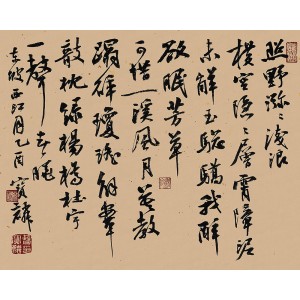 照野瀰〻淺浪
橫空隱〻層霄障泥
未解玉驄驕我醉
欲眠芳草
可惜一溪風月莫教
蹋碎瓊瑤解鞍
敧枕綠楊橋杜宇
一聲春曉
東坡西江月乙酉